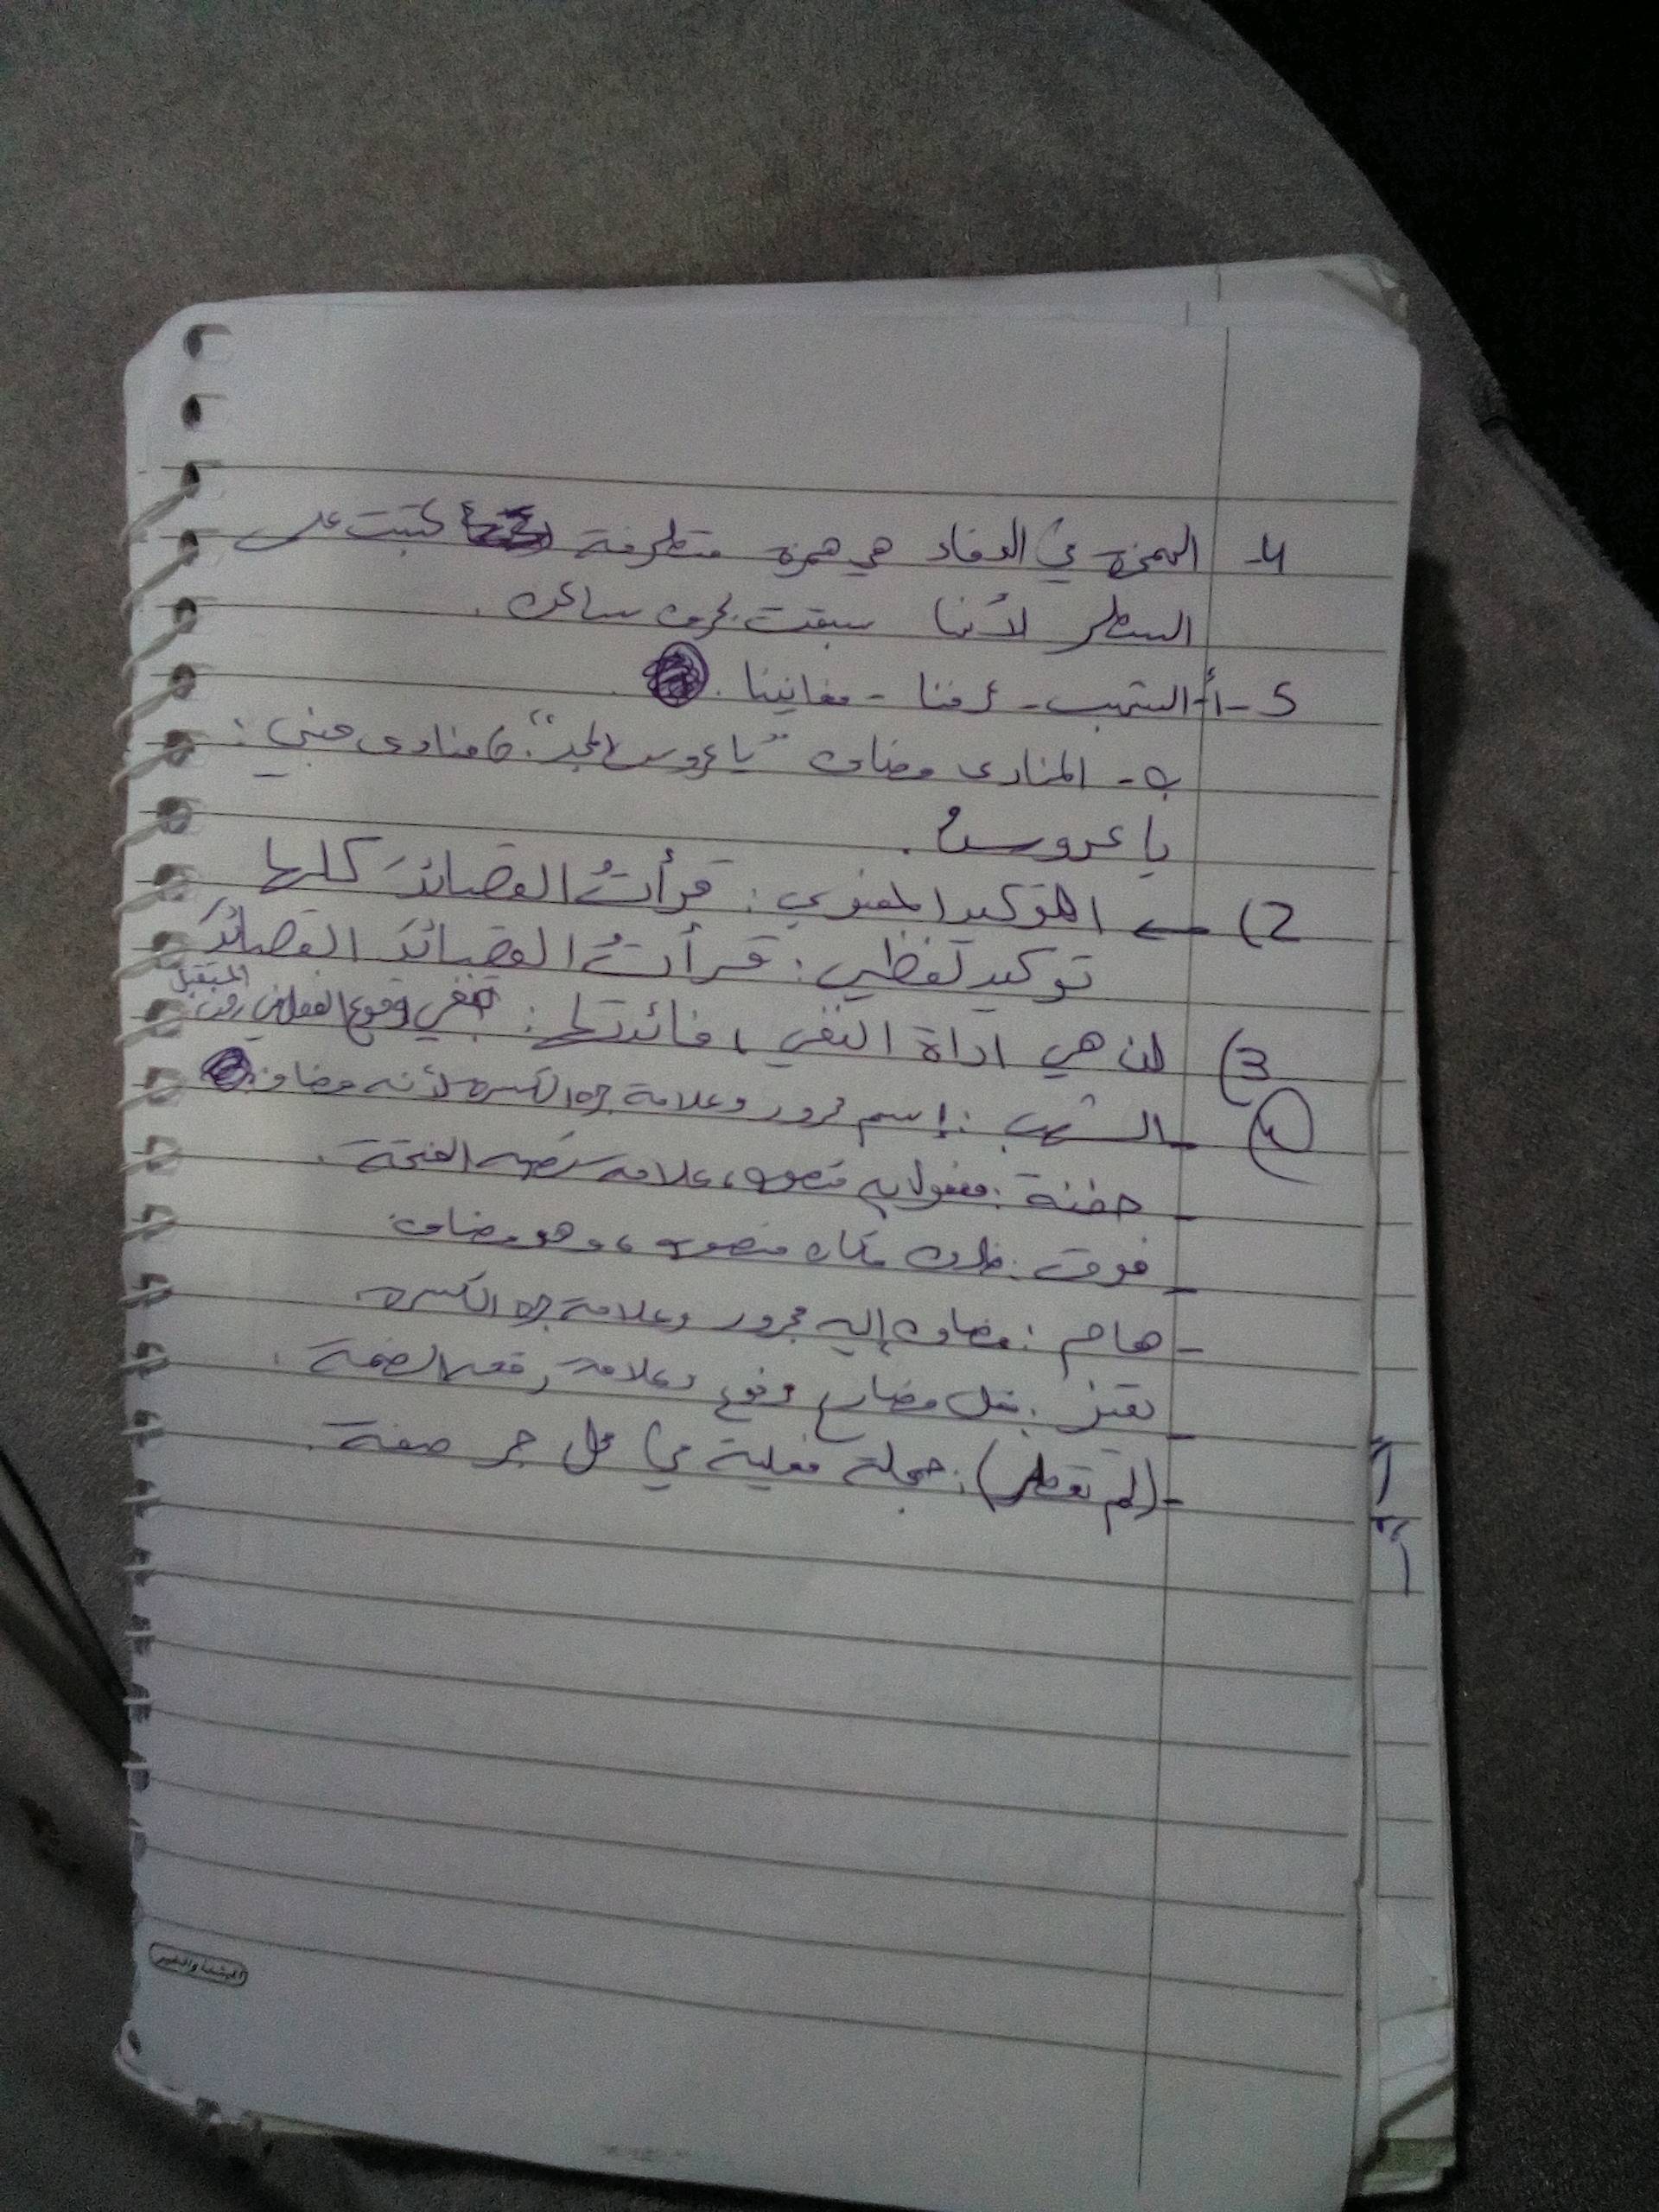 4- الهمزة في الوفاء هي همزة متطرفة كتبت على
السطر لأنها سبقت بحرف ساكن .
5-أ-الشهب - أرضنا - مغانينا .
ب- المنادى مضاف "يا عروس المجد". 6 منادى مبني :
يا عروسُ .
2) ← التوكيد المعنوي : قرأتُ القصائدَ كلها
توكيد لفظي : قرأتُ القصائدَ القصائدَ
3) لن هي اداة النفي ، فائدتها : نفي وقوع الفعل في زمن المستقبل
4) - الشهب : إسم مجرور وعلامة جره الكسرة لأنه مضاف
- حفنة : مفعول به منصوب، علامة نصبه الفتحة .
- فوق : ظرف مكان منصوب ، وهو مضاف
- هام : مضاف إليه مجرور وعلامة جره الكسرة.
- : فعل مضارع مرفوع وعلامة رفعه الضمة .
- (لم تعطر) : جملة فعلية في محل جر صفة .